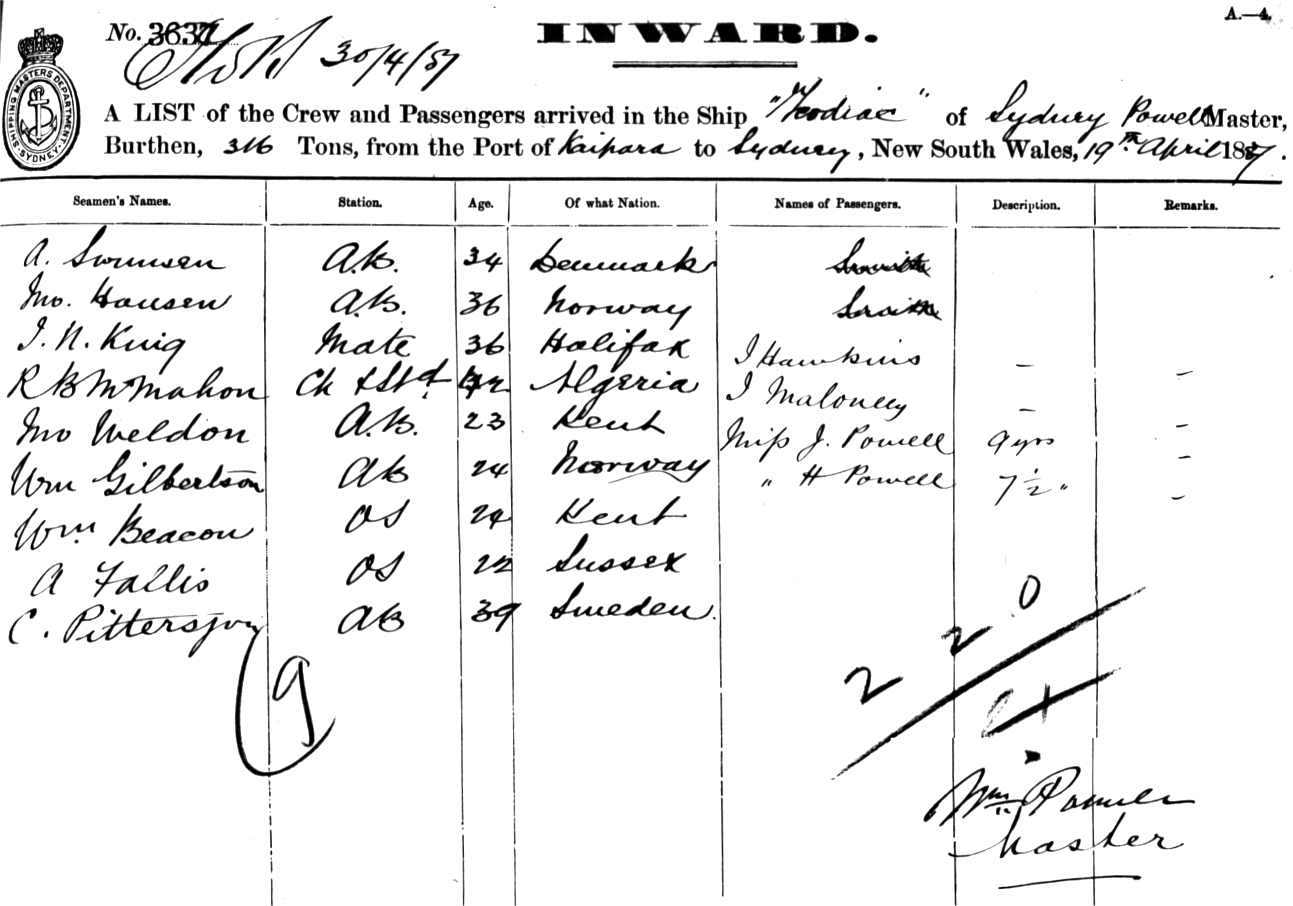 A.—4.
INWARD.
No. 3637
30/4/87
SHIPPING MASTERS DEPARTMENT SYDNEY
A LIST of the Crew and Passengers arrived in the Ship "Zeodiac" of Sydney Powell Master,
Burthen, 316 Tons, from the Port of Kaipara to Sydney, New South Wales, 19th April 1887.
Seamen's Names. Station. Age. Of what Nation. Names of Passengers. Description. Remarks.
A. Swensen A.B. 34 Denmark
Jno. Hansen A.B. 36 Norway
J. N. King Mate 36 Halifax J Hawkins — —
R B McMahon Ch & Std 42 Algeria J Maloney — —
Jno Weldon A.B. 23 Kent Miss J. Powell 9 yrs —
Wm Gilbertson AB 24 Norway " H Powell 7½ " —
Wm. Beacon OS 24 Kent
A Fallis OS 22 Sussex
C. Pittersson AB 39 Sweden.
9
2 2 0
Wm Powell
Master